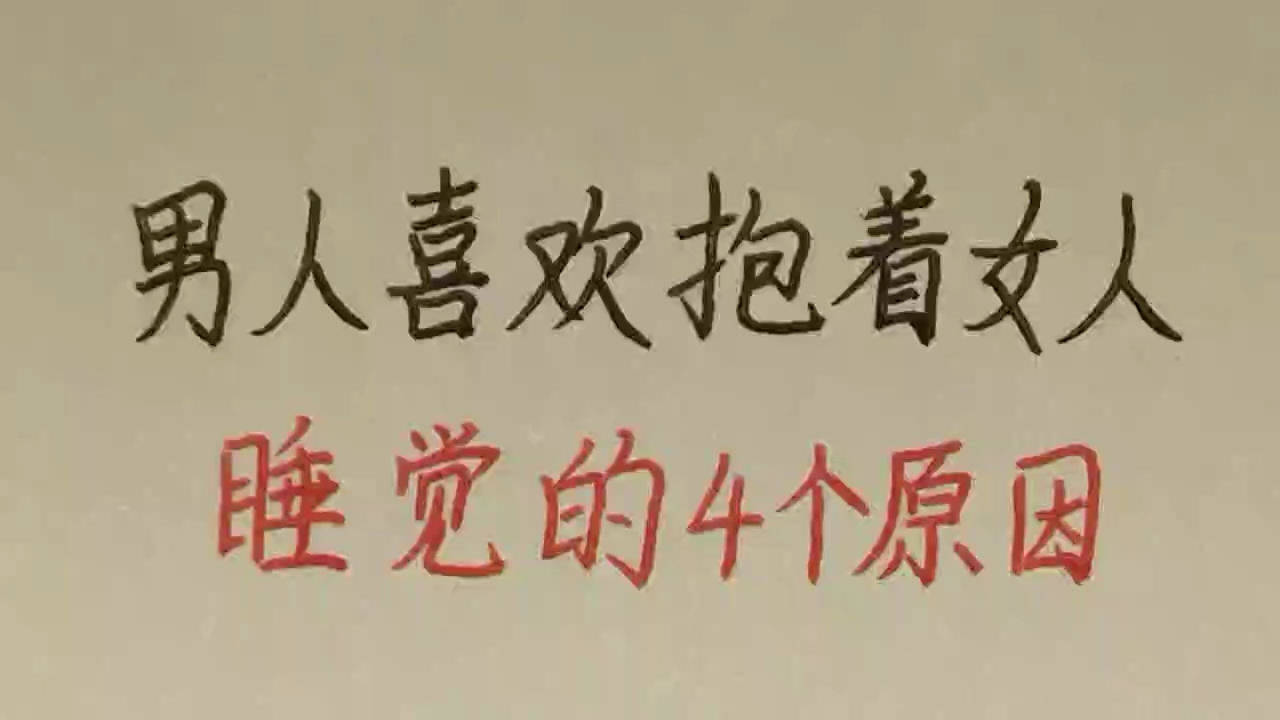 男人喜欢抱着女人
睡觉的4个原因